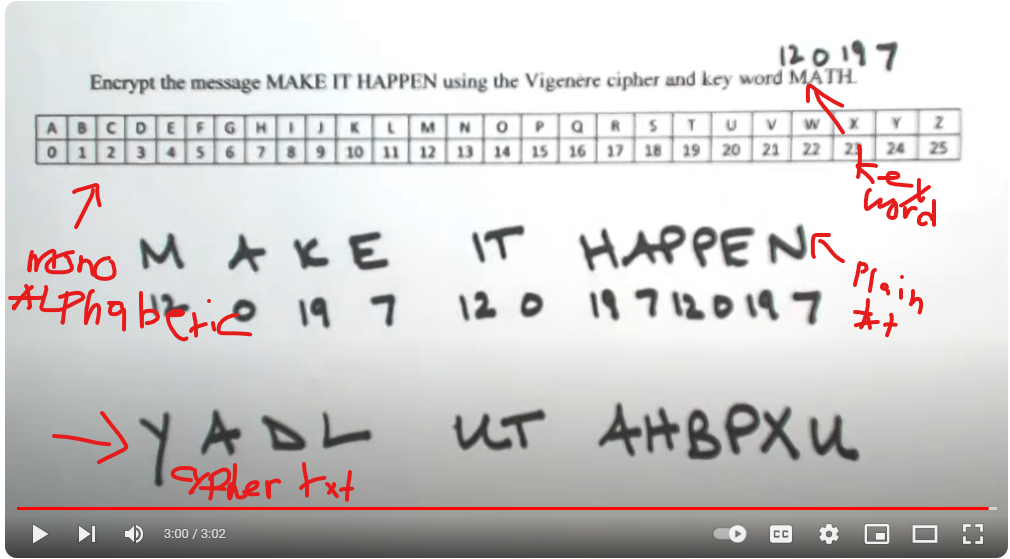 12 0 19 7
Encrypt the message MAKE IT HAPPEN using the Vigenère cipher and key word MATH.
A B C D E F G H I J K L M N O P Q R S T U V W X Y Z
0 1 2 3 4 5 6 7 8 9 10 11 12 13 14 15 16 17 18 19 20 21 22 23 24 25
word
MAKE IT HAPPEN
mono
ALPhabetic
Plain
12 0 19 7 12 0 19 7 12 0 19 7
YADL UT AHBPXU
cypher txt
3:00 / 3:02
CC